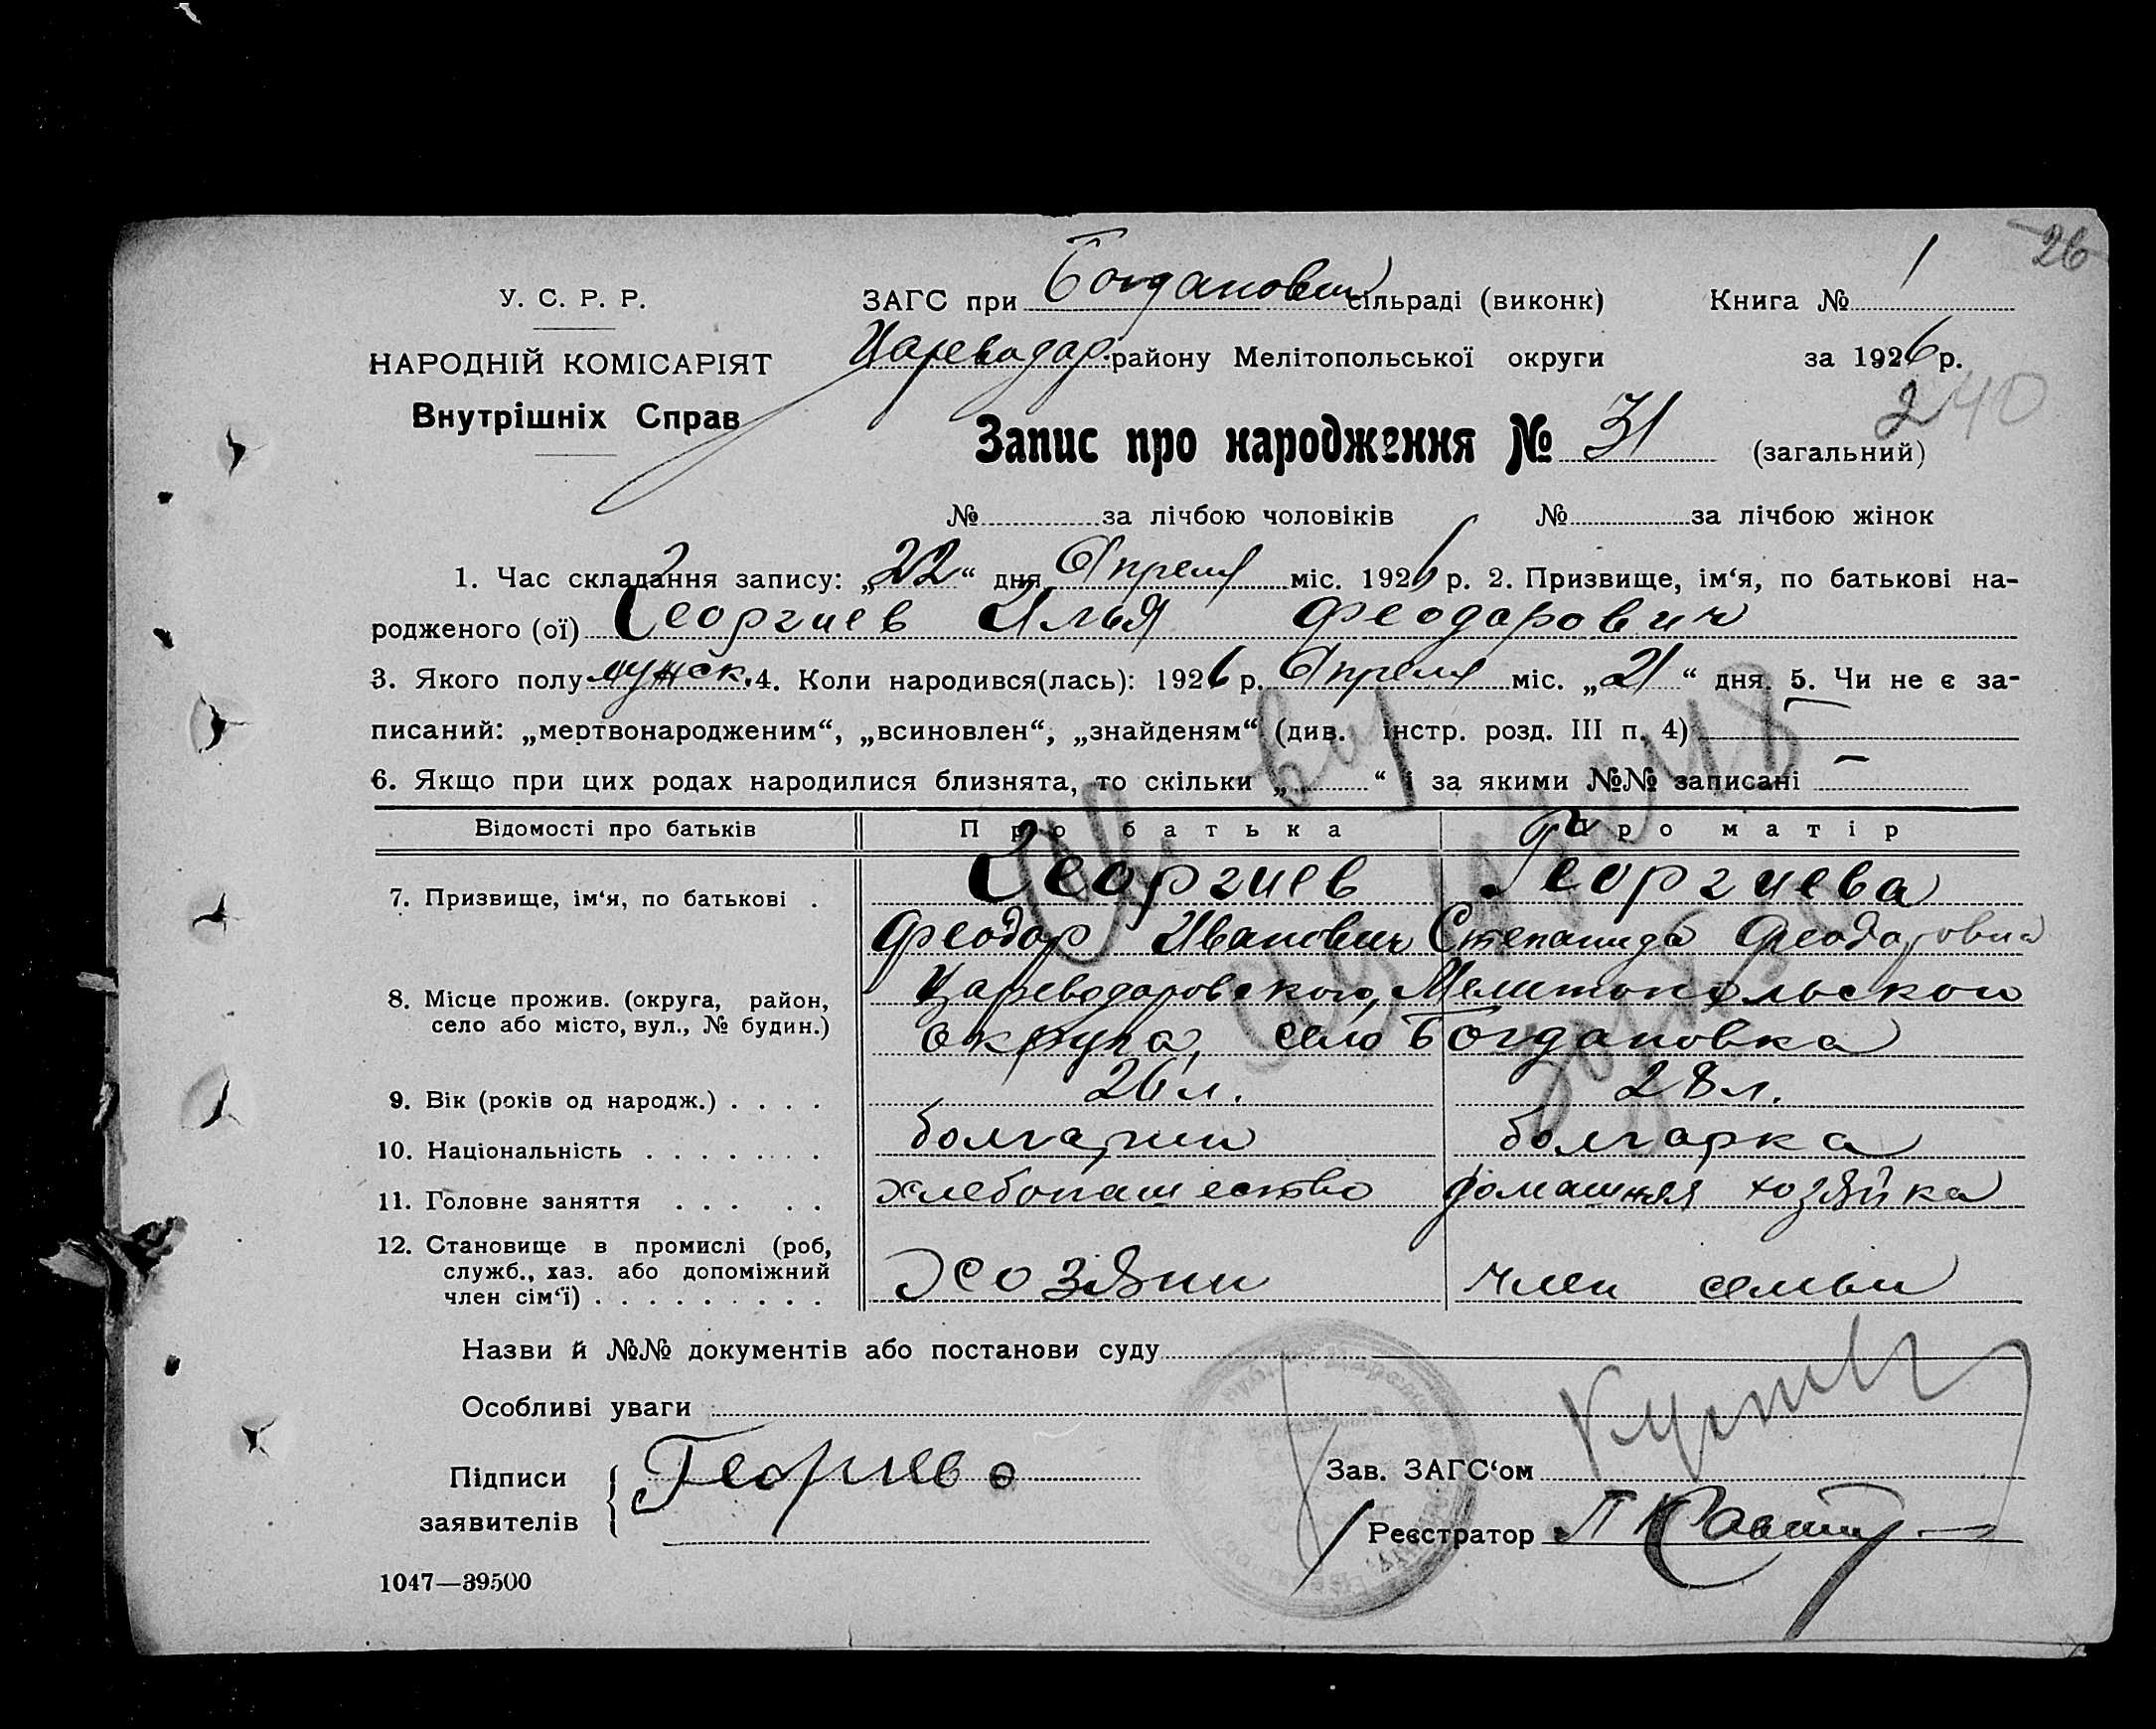 26
У. С. Р. Р.
ЗАГС при Богданович сільраді (виконк)
Книга № 1
НАРОДНІЙ КОМІСАРІЯТ
Цареводар. району Мелітопольської округи
за 1926 р.
Внутрішніх Справ
240
Запис про народження № 31 (загальний)
№ за лічбою чоловіків № за лічбою жінок
1. Час складання запису: „22“ дня Апреля міс. 1926 р. 2. Призвище, ім‘я, по батькові на-
родженого (ої) Георгиев Илья Феодарович
3. Якого полу мужск. 4. Коли народився(лась): 1926 р. Апреля міс. „21“ дня. 5. Чи не є за-
писаний: „мертвонародженим“, „всиновлен“, „знайденям“ (див. інстр. розд. III п. 4) —
6. Якщо при цих родах народилися близнята, то скільки „ “ і за якими №№ записані —
Відомості про батьків Про батька Про матір
7. Призвище, ім‘я, по батькові . Георгиев Георгиева
Феодор Иванович Степанида Феодоровна
8. Місце прожив. (округа, район, Цареводаровского, Мелитопольского
село або місто, вул., № будин.) округа, село Богдановка
9. Вік (років од народж.) . . . . 26 л. 28 л.
10. Національність . . . . . . . болгарин болгарка
11. Головне заняття . . . . . хлебопашество домашняя хозяйка
12. Становище в промислі (роб,
служб., хаз. або допоміжний
член сім‘ї) . . . . . . . . . Хозяин член семьи
Назви й №№ документів або постанови суду
Особливі уваги
Підписи Георгиев
Зав. ЗАГС‘ом
заявителів
Реєстратор
1047—39500